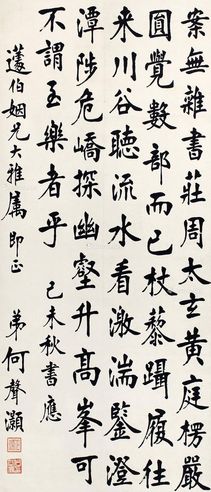 案無雜書莊周太玄黃庭楞嚴
圓覺數部而已杖藜躡履往
来川谷聽流水看激湍鑒澄
潭陟危嶠探幽壑升高峯可
不謂至樂者乎 己未秋書應
蘧伯姻兄大雅属即正
弟何聲灝